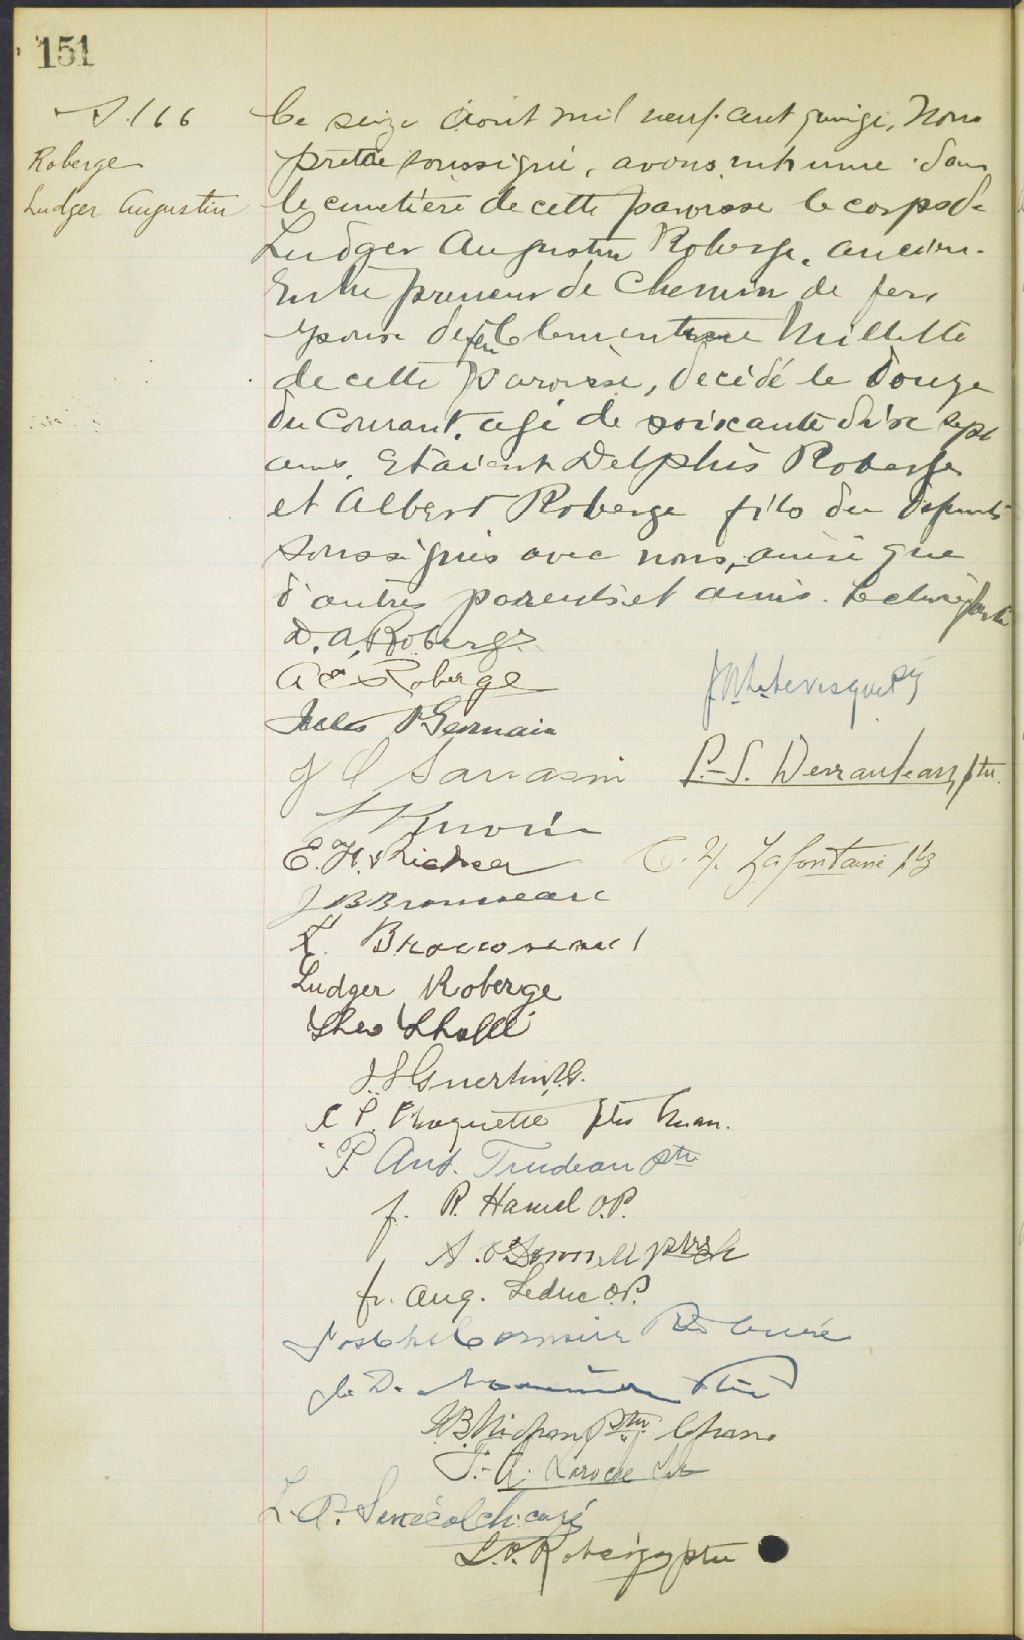 151
S. 166
Roberge
Ludger Augustin
Ce seize Août mil neuf cent quinze, Nous
prêtre soussigné, avons inhumé dans
le cimetière de cette paroisse le corps de
Ludger Augustin Roberge, ancien
Entrepreneur de Chemin de fer,
époux de feu Clementine Millette
de cette paroisse, décédé le douze
du Courant, agé de soixante dix sept
ans. Etaient Delphis Roberge
et Albert Roberge fils du défunt
soussignés avec nous, ainsi que
d'autres parents et amis. Lecture faite
D. A. Roberge
A E Roberge
J N Levesque ptr
Jules St Germain
J C Sarrasin
P.-S. Desranleau, ptre.
E. H. Richer
C. H. Lafontaine ptre
J B Brousseau
L. Brousseau
Ludger Roberge
Theo
J. S Guertin
C P. Choquette ptre
P. Ant. Trudeau ptre
f. R. Hamel O.P.
A. O'Donnell ptre
fr. Aug. Leduc O.P.
Joseph Cormier Ptre Curé
D. ptre
J.B. Michon Ptre Chan.
J.-A. Laroche
L. A. Senécal ch. curé
L. P. Roberge ptre